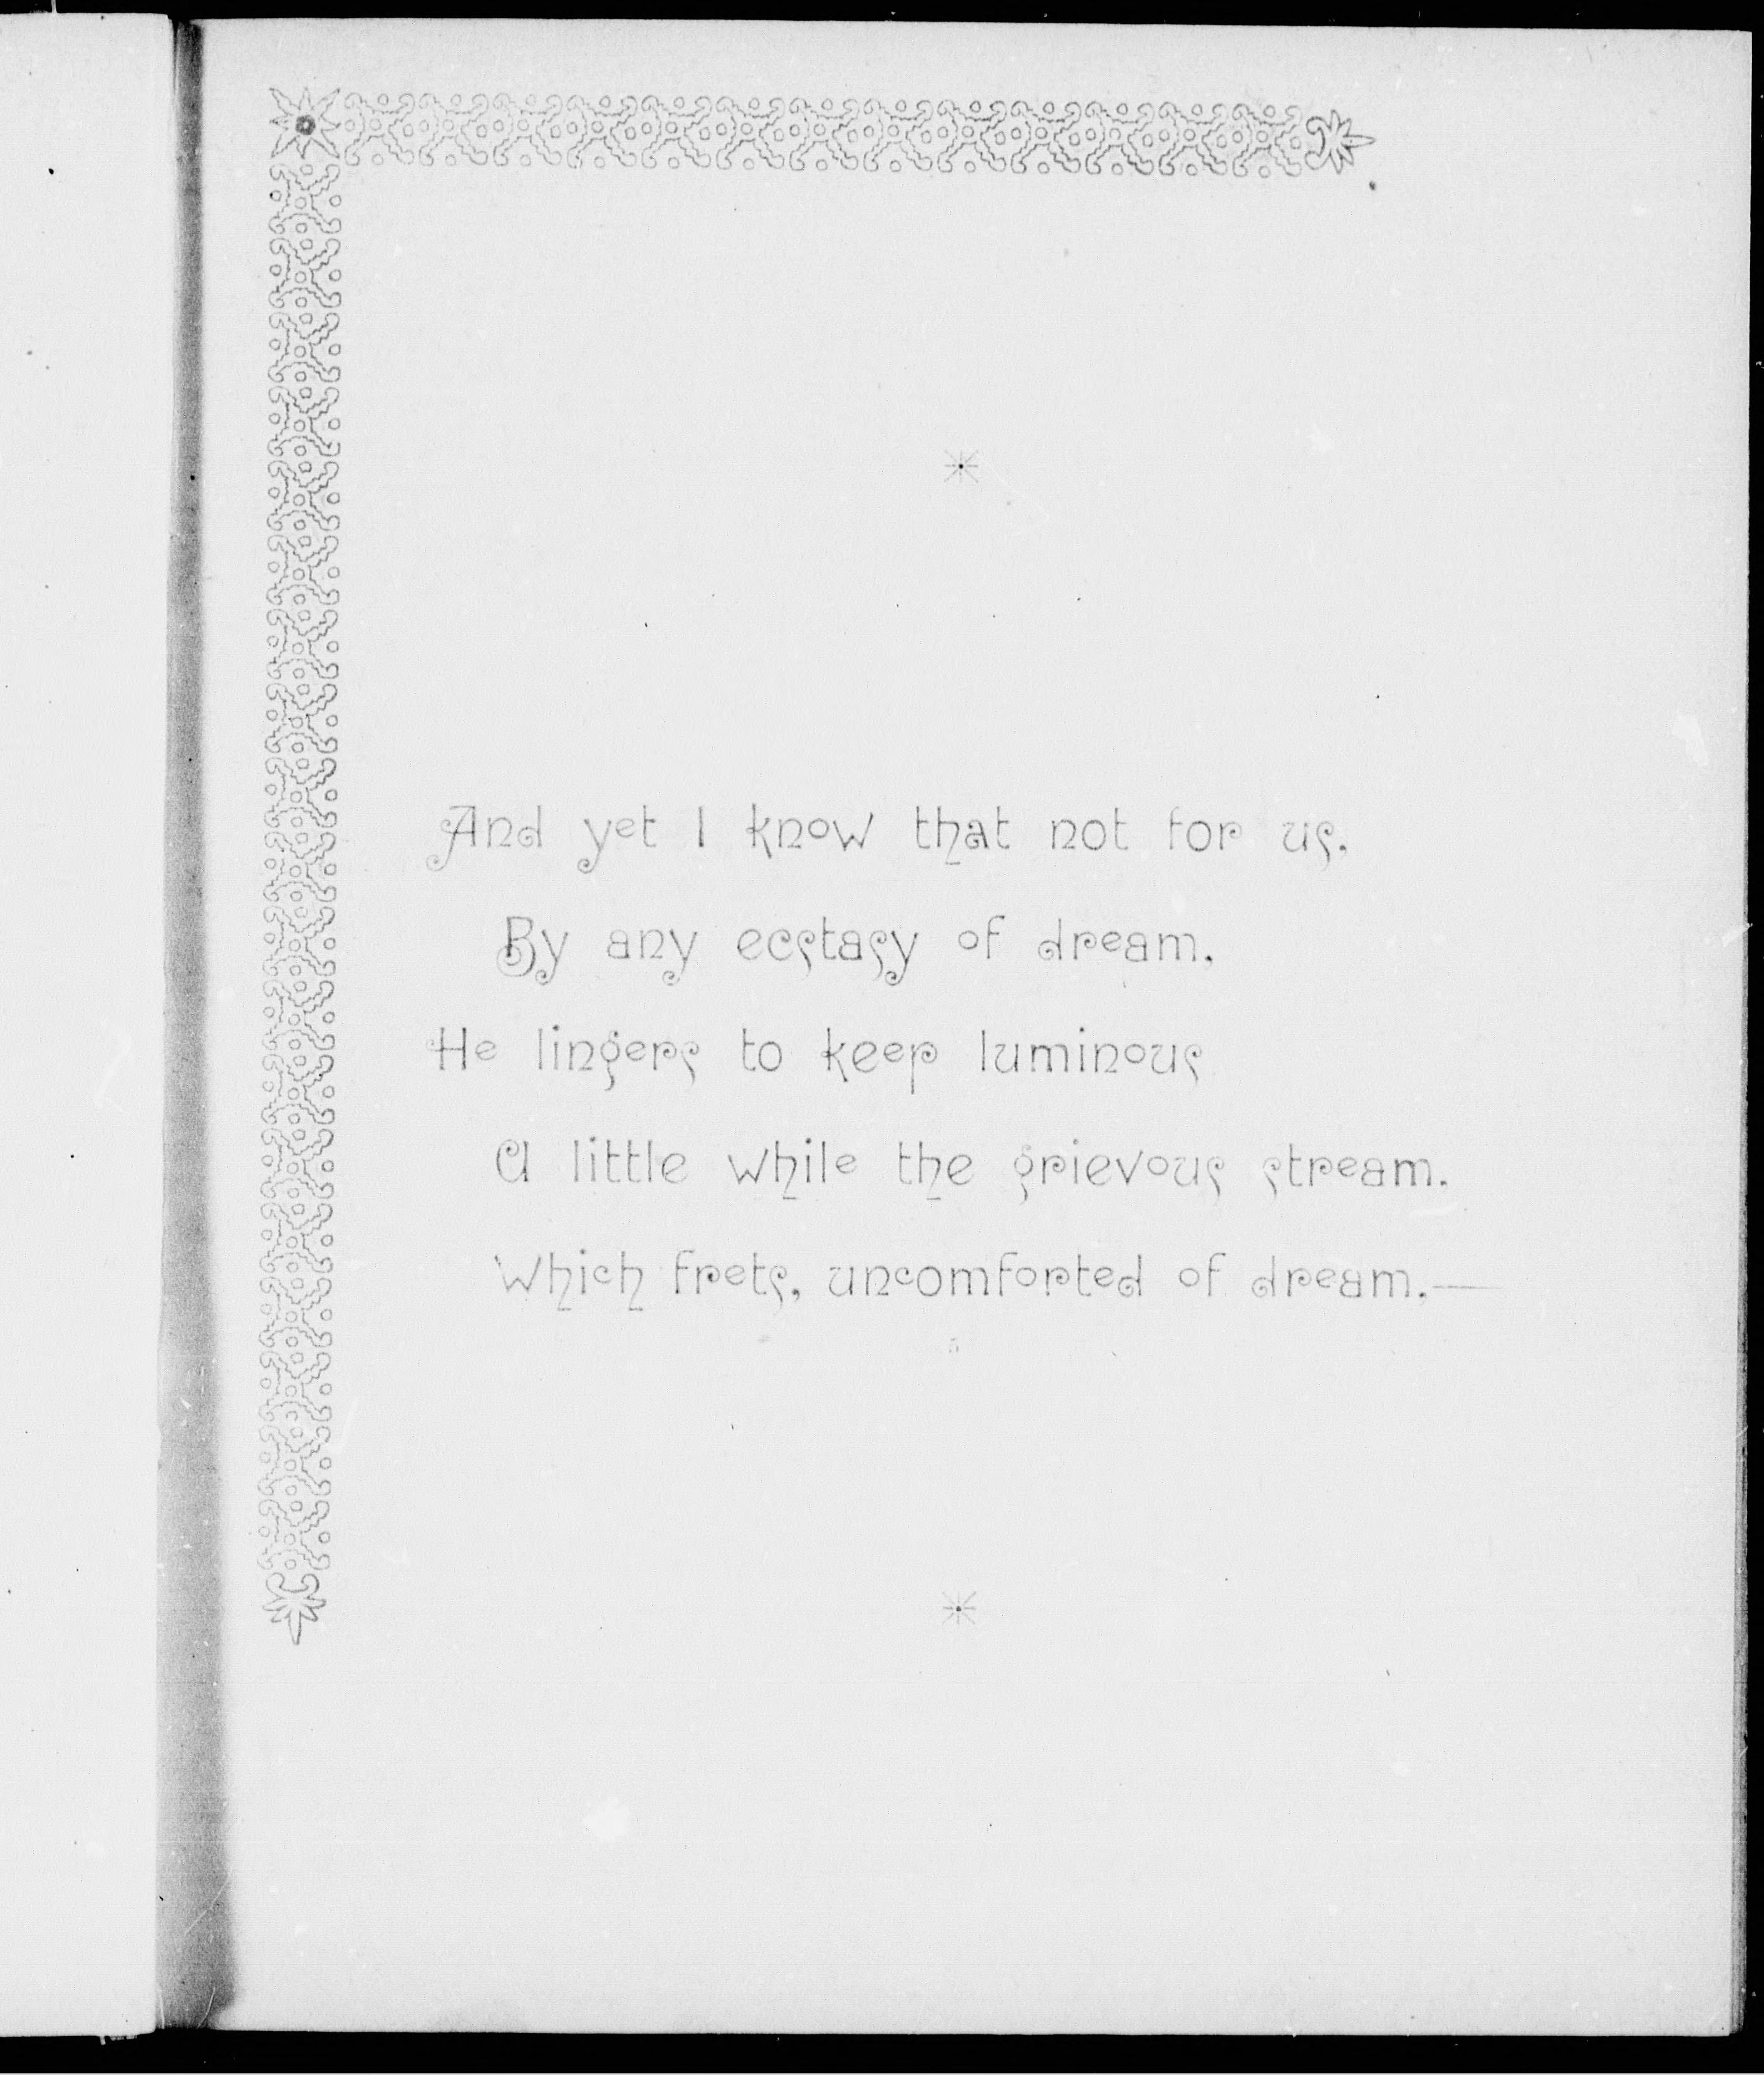 And yet I know that not for us,
By any ecstasy of dream,
He lingers to keep luminous
A little while the grievous stream,
Which frets, uncomforted of dream,—